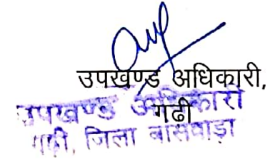 उपखण्ड अधिकारी,
गढ़ी
उपखण्ड अधिकारी
गढ़ी, जिला बांसवाड़ा